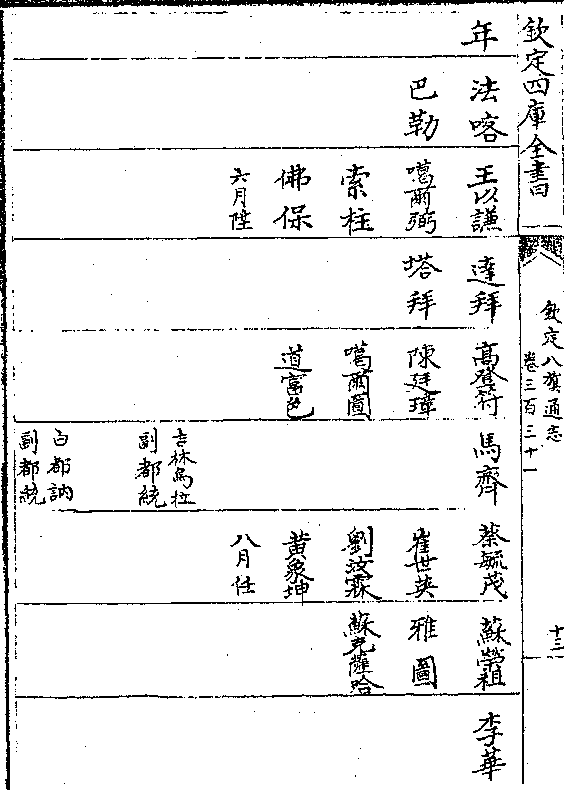 欽定四庫全書
欽定八旗通志
卷三百三十一
十三
年
法喀
巴勒
王以謙
噶爾弼
索柱
佛保
六月陞
達拜
塔拜
高登符
陳廷璋
噶爾圖
道富色
馬齊
吉林烏拉
副都統
白都訥
副都統
蔡毓茂
崔世英
劉汝霖
黃象坤
八月任
蘇榮祖
雅圖
蘇克薩哈
李華